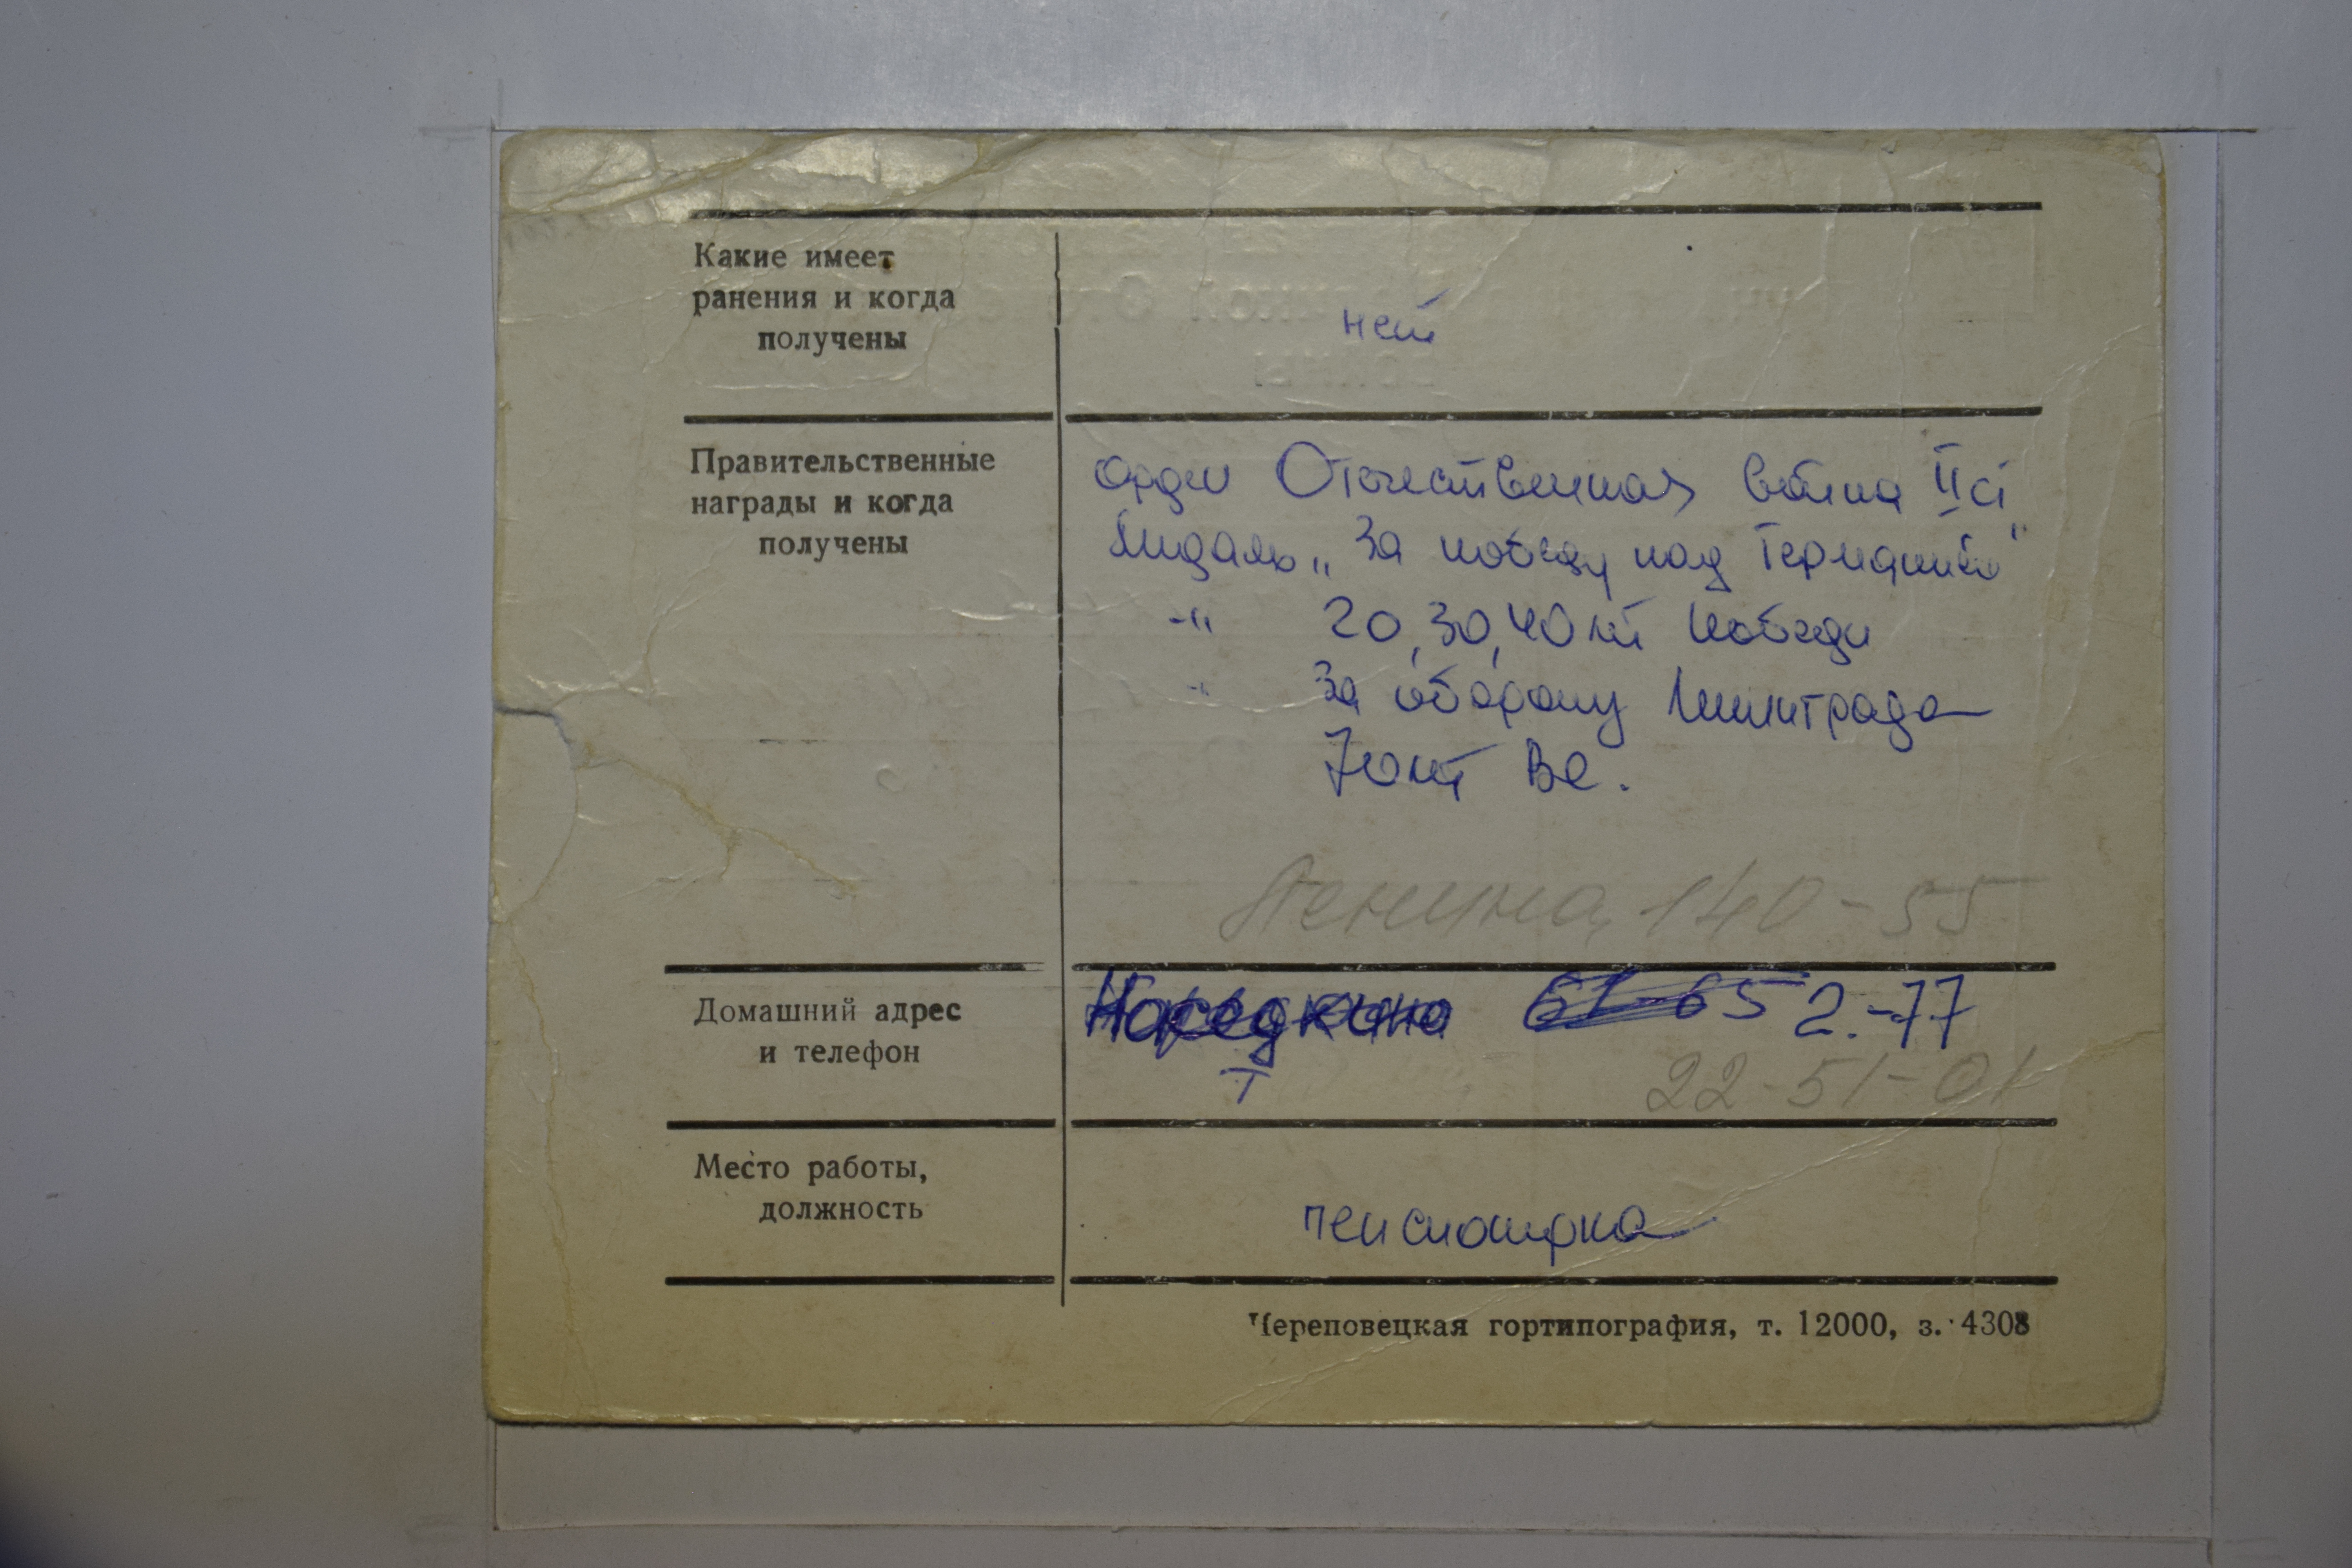 Какие имеет
ранения и когда
получены
нет
Правительственные
награды и когда
получены
орден Отечественная война II ст
Мидаль „За победу над Германией"
-"- 20, 30, 40 лет Победи
-"- За оборону Ленинграда
70 лет ВС.
Ленина, 140-55
Домашний адрес
и телефон
Наседкина 2-77
т 22-51-01
Место работы,
должность
пенсионерка
Череповецкая гортипография, т. 12000, з. 4308